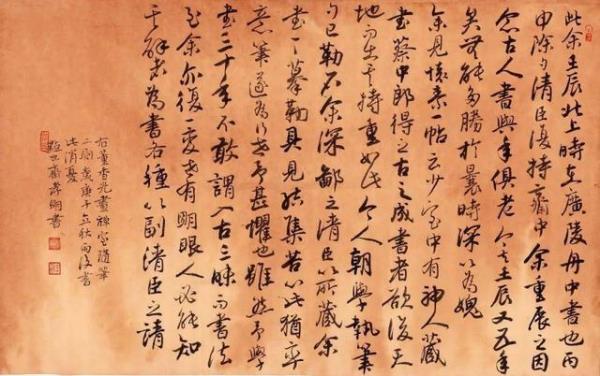 此余壬辰北上時在廣陵舟中書也丙
申除夕清臣復持齋中余重展之因
念古人書與年俱老今去壬辰又五年
矣無能多勝於曩時深以為媿
余見懷素一帖云少室中有神人藏
書蔡中郎得之古之成書者欲後天
地而出其持重如此今人朝學執筆
夕已勒石余深鄙之清臣以所藏余
書一一摹勒具見結集苦心此猶率
意筆遂為行世予甚懼也雖然予學
書三十年不敢謂入古三昧而書法
至余亦復一變世有明眼人必能知
其解者為書各種以副清臣之請
右董香光畫禪室隨筆
二則歲庚子立秋向後書
此消夏
書